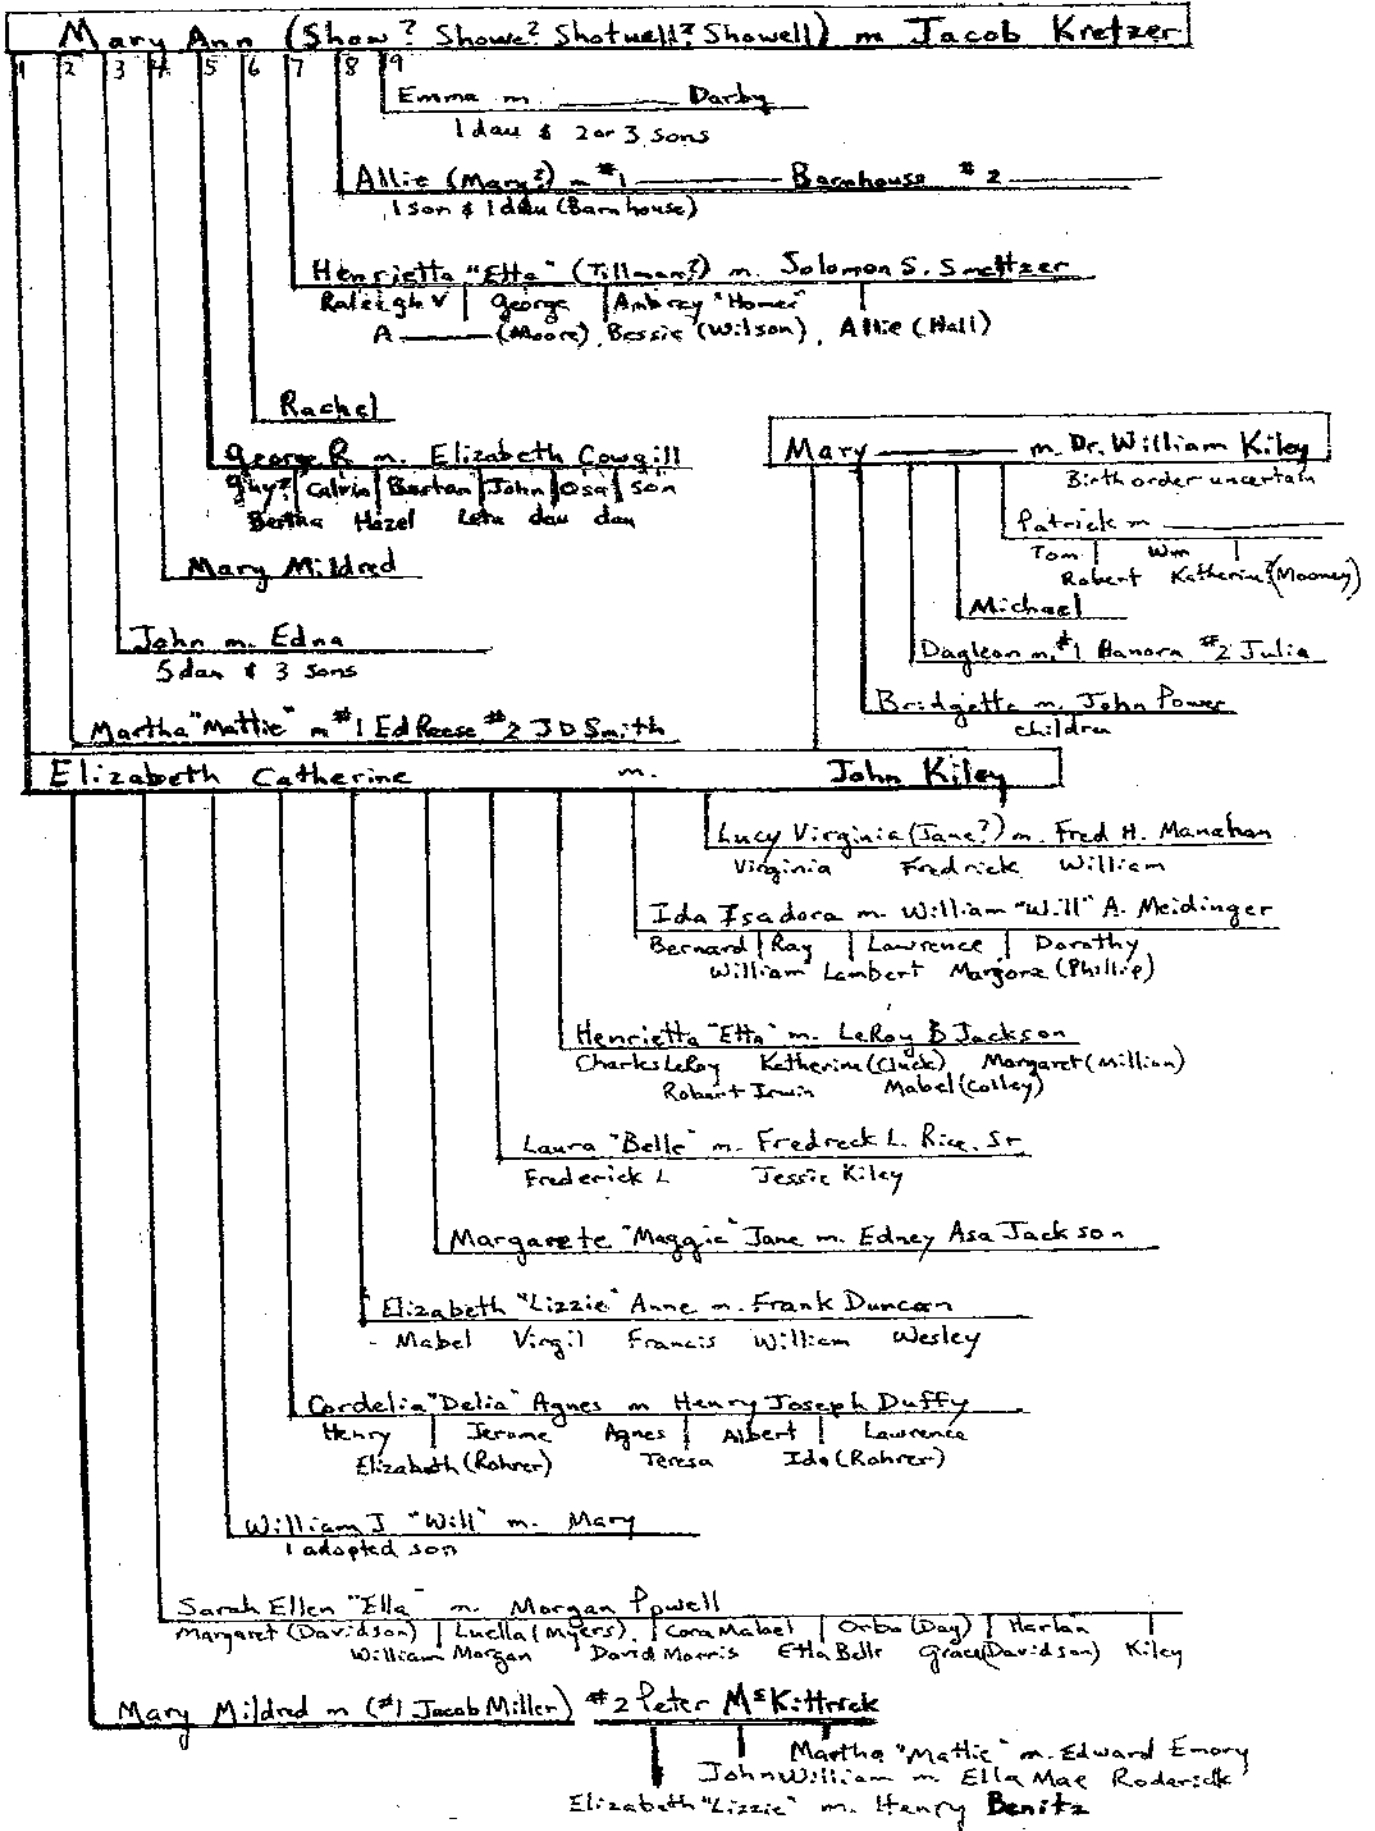 Mary Ann (Show? Showe? Shotwell? Showell) m Jacob Kretzer
1 2 3 4 5 6 7 8 9
Emma m ——— Darby
1 dau & 2 or 3 sons
Allie (Mary?) m #1 ——— Barnhouse #2 ———
1 son & 1 dau (Barnhouse)
Henrietta "Etta" (Tillman?) m. Solomon S. Smeltzer
Raleigh V George Aubrey "Homer"
A——— (Moore) Bessie (Wilson), Allie (Hall)
Rachel
George R m. Elizabeth Cowgill
Guy? Calvin Bartan John Osa son
Bertha Hazel Leta dau dau
Mary ——— m. Dr. William Kiley
Birth order uncertain
Patrick m ———
Tom Wm
Robert Katherine? (Mooney)
Mary Mildred
Michael
John m. Edna
5 dau & 3 sons
Dagleon m. #1 Hanora #2 Julia
Bridgette m. John Power
children
Martha "Mattie" m #1 Ed Reese #2 J D Smith
Elizabeth Catherine m. John Kiley
Lucy Virginia (Jane?) m. Fred H. Manahan
Virginia Fredrick William
Ida Isadora m. William "Will" A. Meidinger
Bernard Ray Lawrence Dorothy
William Lambert Margora (Phillip)
Henrietta "Etta" m. LeRoy B Jackson
Charles LeRoy Katherine (Cluck) Margaret (Million)
Robert Irwin Mabel (Colley)
Laura "Belle" m. Fredreck L. Rice, Sr
Frederick L Jessie Kiley
Margarete "Maggie" Jane m. Edney Asa Jackson
Elizabeth "Lizzie" Anne m. Frank Duncan
Mabel Virgil Francis William Wesley
Cordelia "Delia" Agnes m Henry Joseph Duffy
Henry Jerome Agnes Albert Lawrence
Elizabeth (Rohrer) Teresa Ida (Rohrer)
William J "Will" m. Mary
1 adopted son
Sarah Ellen "Ella" m. Morgan Powell
Margaret (Davidson) Luella (Myers) Cora Mabel Orba (Day) Harlan
William Morgan David Morris Etta Belle Grace (Davidson) Kiley
Mary Mildred m (#1 Jacob Miller) #2 Peter McKittrick
Martha "Mattie" m. Edward Emory
John William m. Ella Mae Roderick
Elizabeth "Lizzie" m. Henry Benitz